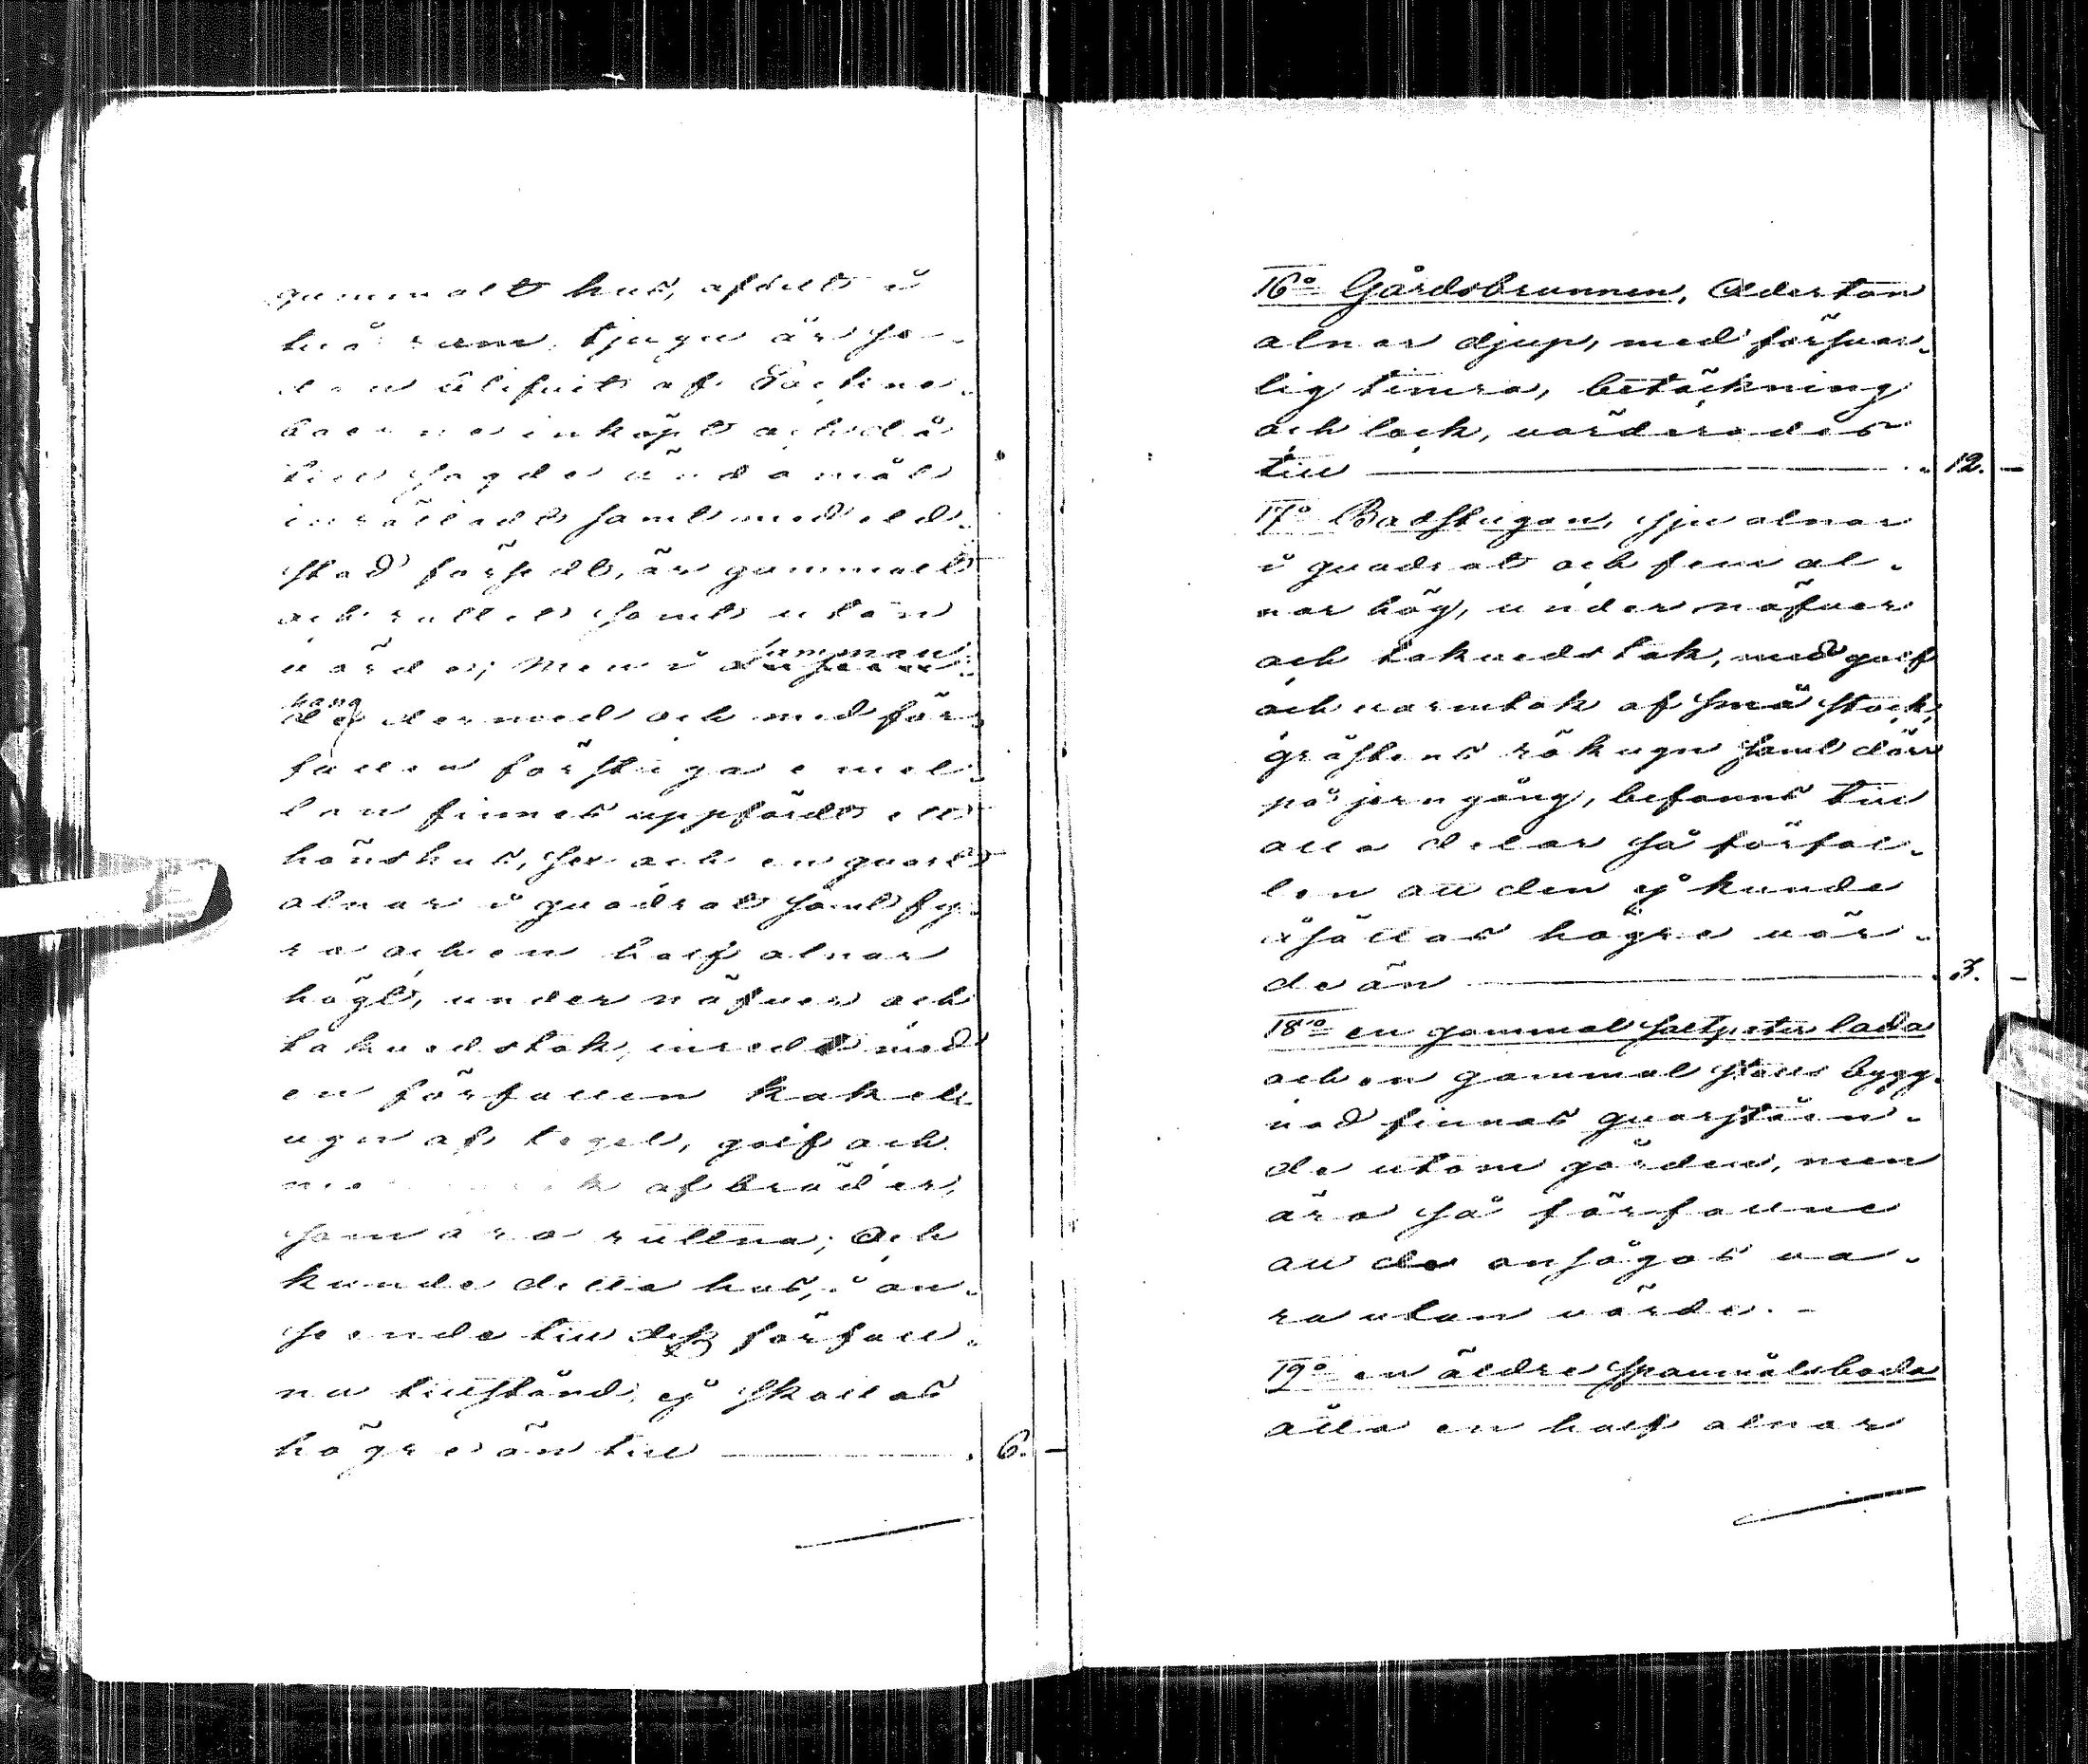 gammalt hus, afdelt i
två rum, tjugu år se-
dan blifvit af Sockne-
boerne inköpt och då
till sagde ändamål
inrättadt samt med eld-
stad försedt, är gammalt
och ruttet samt utan
värde; Men i samman
hang dermed och med för-
fallen förstuga emel-
lan finnes uppfördt ett
hönshus, sex och en qvart
alnar i quadrat samt fy-
ra och en half alnar
högt, under näfver och
takvedstak, inredt med
en förfallen kakel-
ugn af tegel, golf och
af bräder,
som äro ruttna; Och
kunde detta hus, i an-
seende till dess förfall-
na tillstånd, ej skattas
högre än till — 6. —
16:o Gårdsbrunnen, Aderton
alnar djup, med försvar-
lig timra, betäckning
och lock, värderades
till — 12. —
17:o Badstugan, sju alnar
i quadrat och fem al-
nar hög, under näfver
och takvedstak, med golf
och varmtak af små stock,
gråstens rökugn samt dörr
på jerngång, befanns till
alla delar så förfal-
len att den ej kunde
åsättas högre vär-
de än — 3. —
18:o en gammal saltpeter lada
och en gammal stall bygg-
nad finnas qvarståen-
de utom gården, men
äro så förfallne
att de ansågos va-
ra utan värde. -
19:o en äldre spanmålsboda
åtta en half alnar